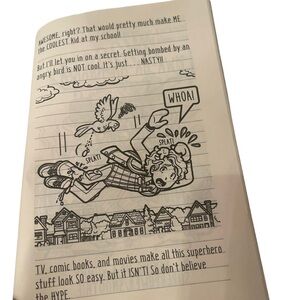 AWESOME, right? That would pretty much make ME
the COOLEST kid at my school!
But I'll let you in on a secret. Getting bombed by an
angry bird is NOT cool. It's just . . . NASTY!!
WHOA!
SPLAT!
SPLAT!
TV, comic books, and movies make all this superhero
stuff look SO easy. But it ISN'T! So don't believe
the HYPE.